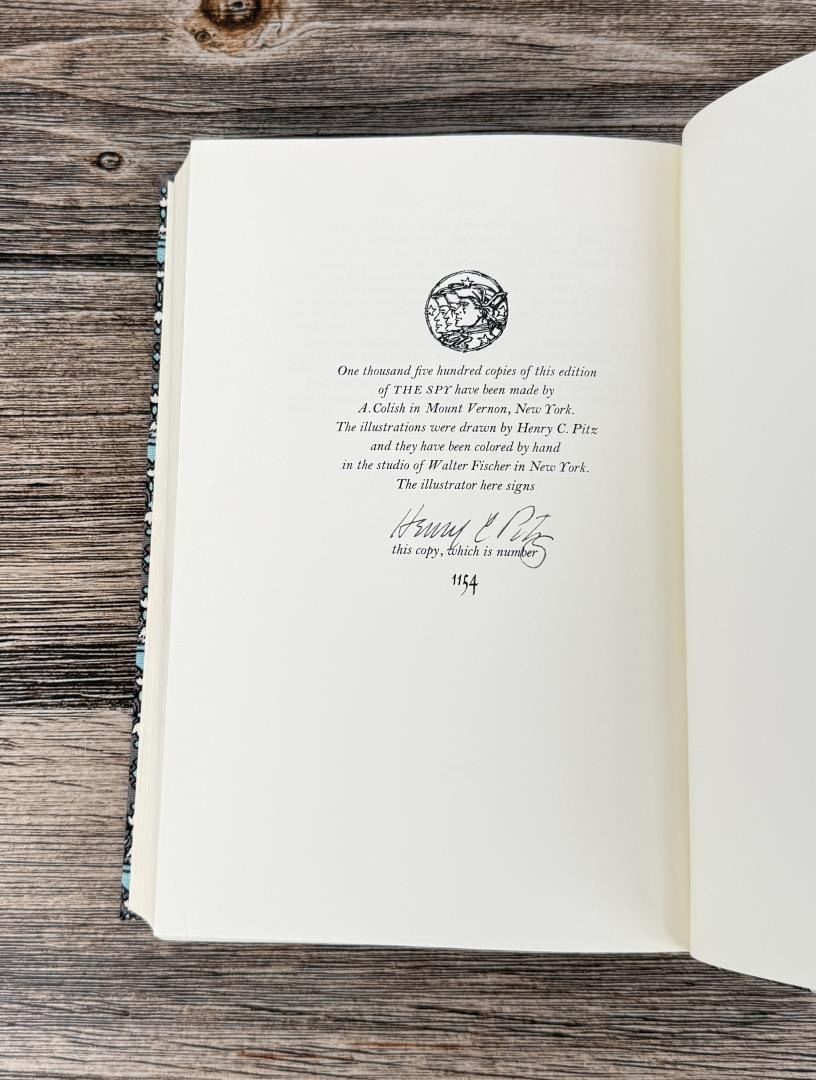 One thousand five hundred copies of this edition
of THE SPY have been made by
A. Colish in Mount Vernon, New York.
The illustrations were drawn by Henry C. Pitz
and they have been colored by hand
in the studio of Walter Fischer in New York.
The illustrator here signs
Henry C Pitz
this copy, which is number
1154